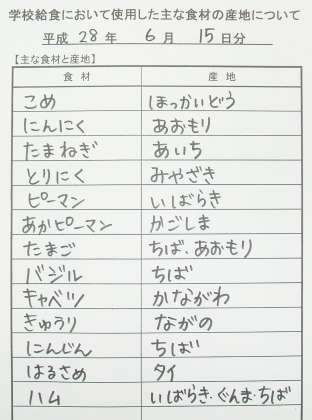 学校給食において使用した主な食材の産地について
平成 28 年 6 月 15 日分
【主な食材と産地】
食材 産地
こめ ほっかいどう
にんにく あおもり
たまねぎ あいち
とりにく みやざき
ピーマン いばらき
あかピーマン かごしま
たまご ちば、あおもり
バジル ちば
キャベツ かながわ
きゅうり ながの
にんじん ちば
はるさめ タイ
ハム いばらき、ぐんま、ちば